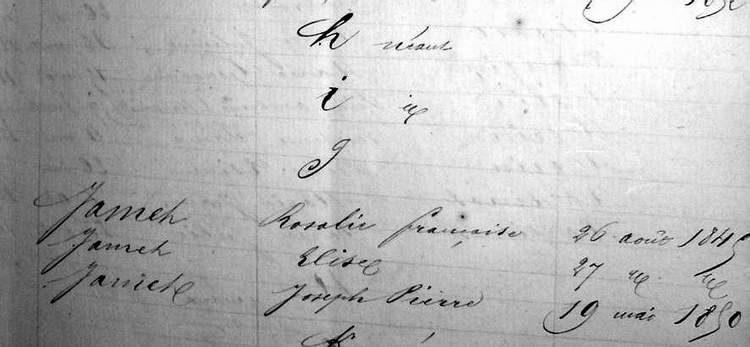 1850
h néant
i id
J
Jameh Rosalie françoise 26 août 1849
Jameh Elise 27 id id
Jameh Joseph Pierre 19 mai 1850
K